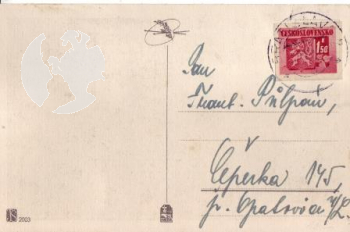 ČESKOSLOVENSKO
1'50
Pan
Frant. Půlpán,
Čeperka 145,
p. Opatovice n/L.
2003